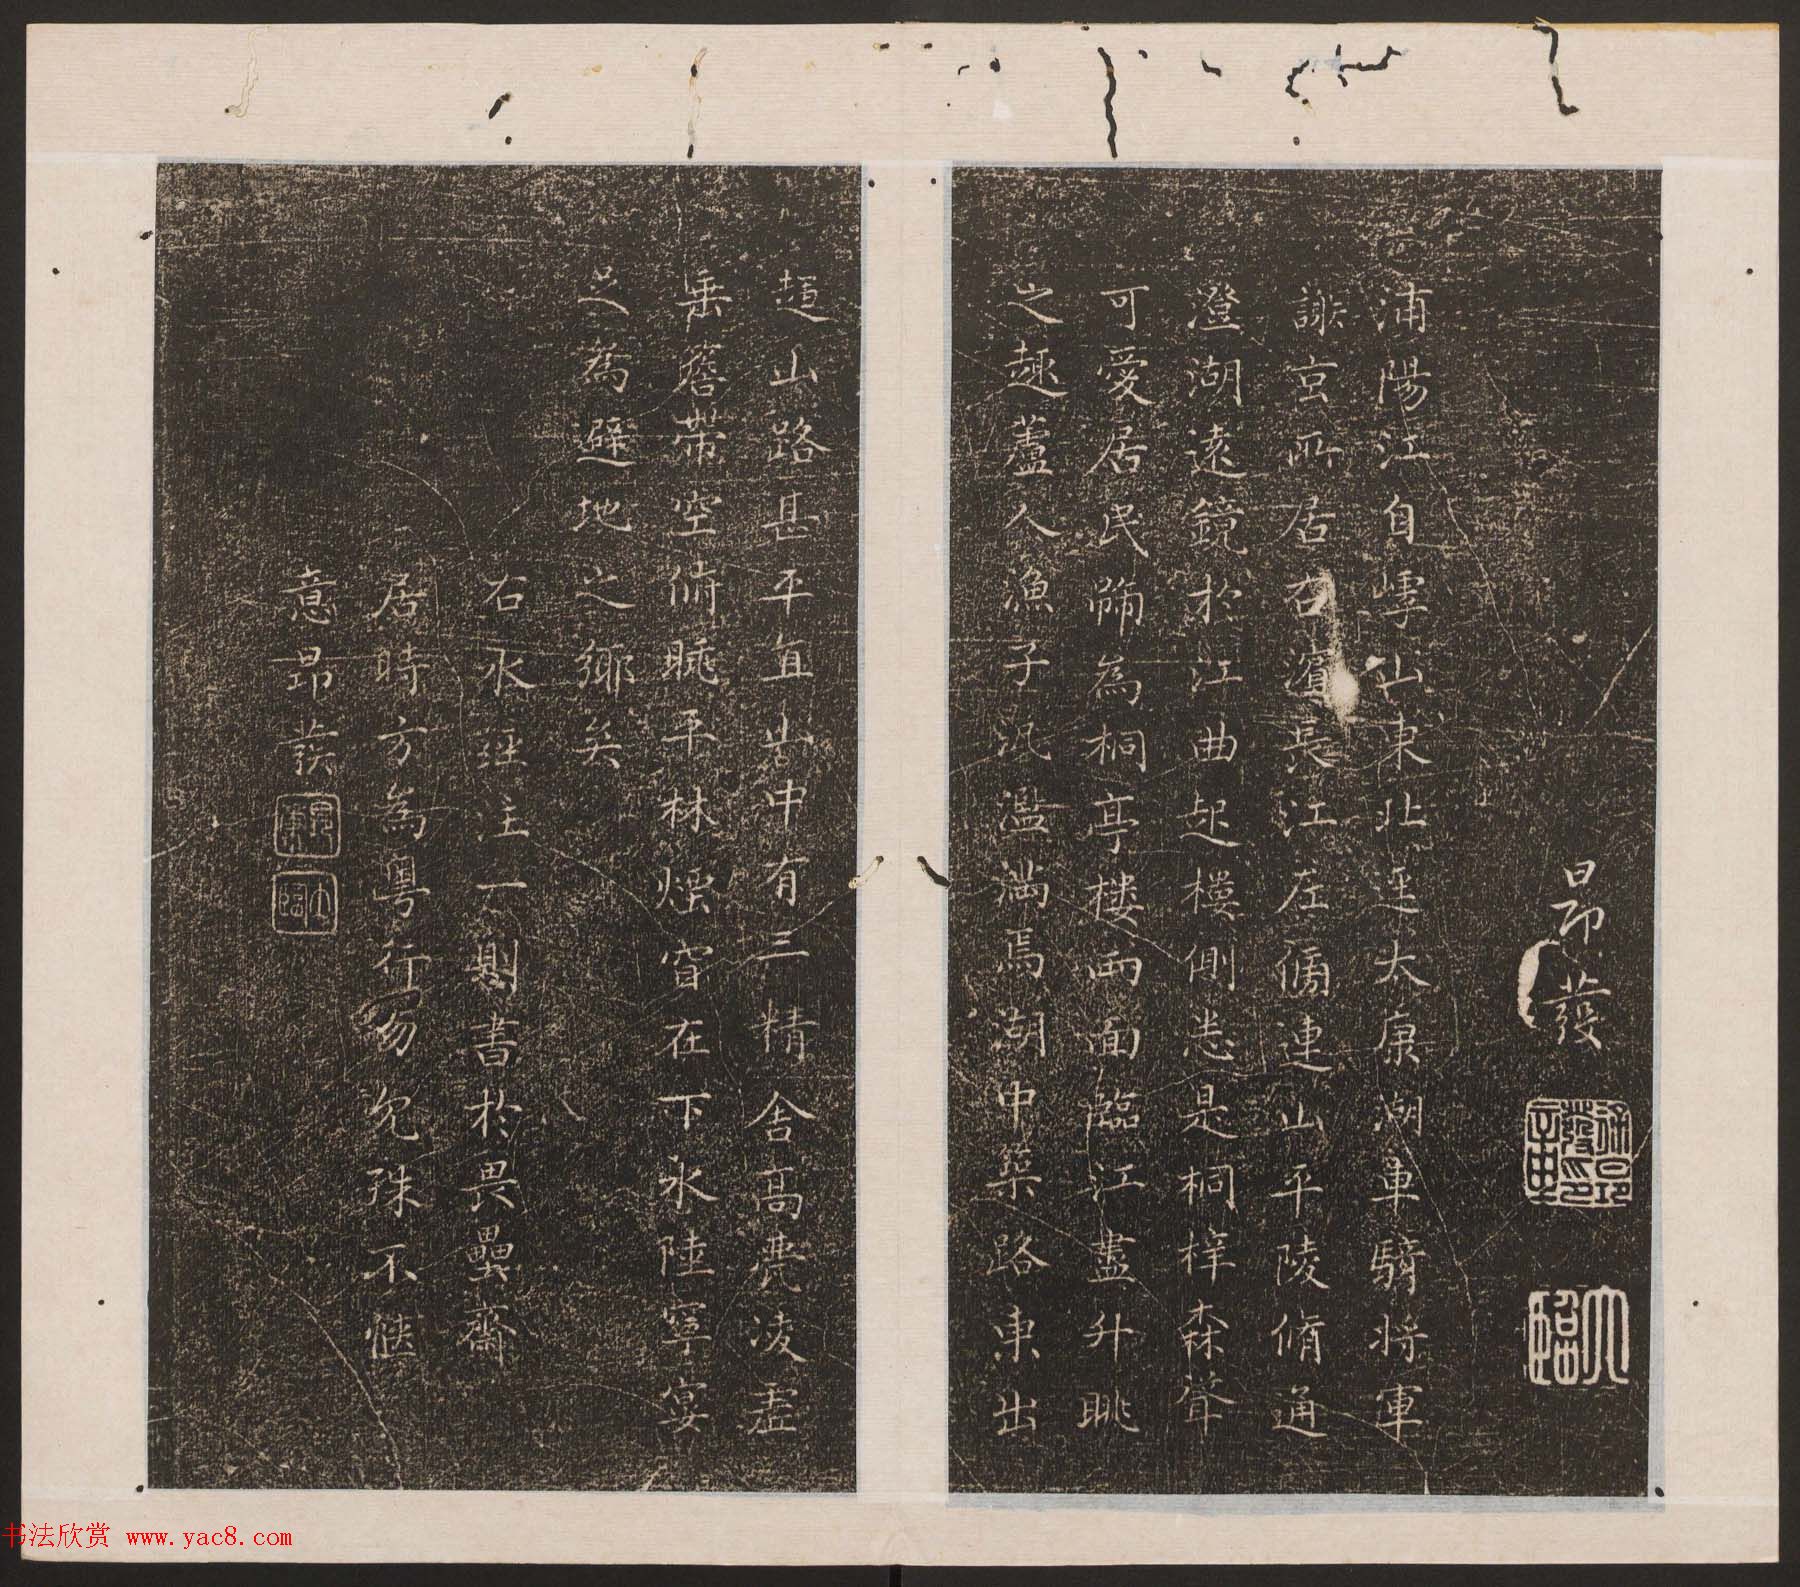 昂發
徐昂發印
大臨
浦陽江自嶀山東北逕太康湖車騎將軍
謝玄所居右濱長江左傍連山平陵脩通
澄湖遠鏡於江曲起樓側悉是桐梓森聳
可愛居民啼為桐亭樓兩面臨江盡升眺
之趣蘆人漁子汎濫滿焉湖中築路東出
趨山路甚平直出中有三精舍高甍凌虛
垂簷帶空俯眺平林煙杳在下水陸寧宴
足為避地之鄉矣
右水經注一則書於畏壘齋
居時方為粵行匆匆殊不愜
意昂發
大臨
书法欣赏 www.yac8.com